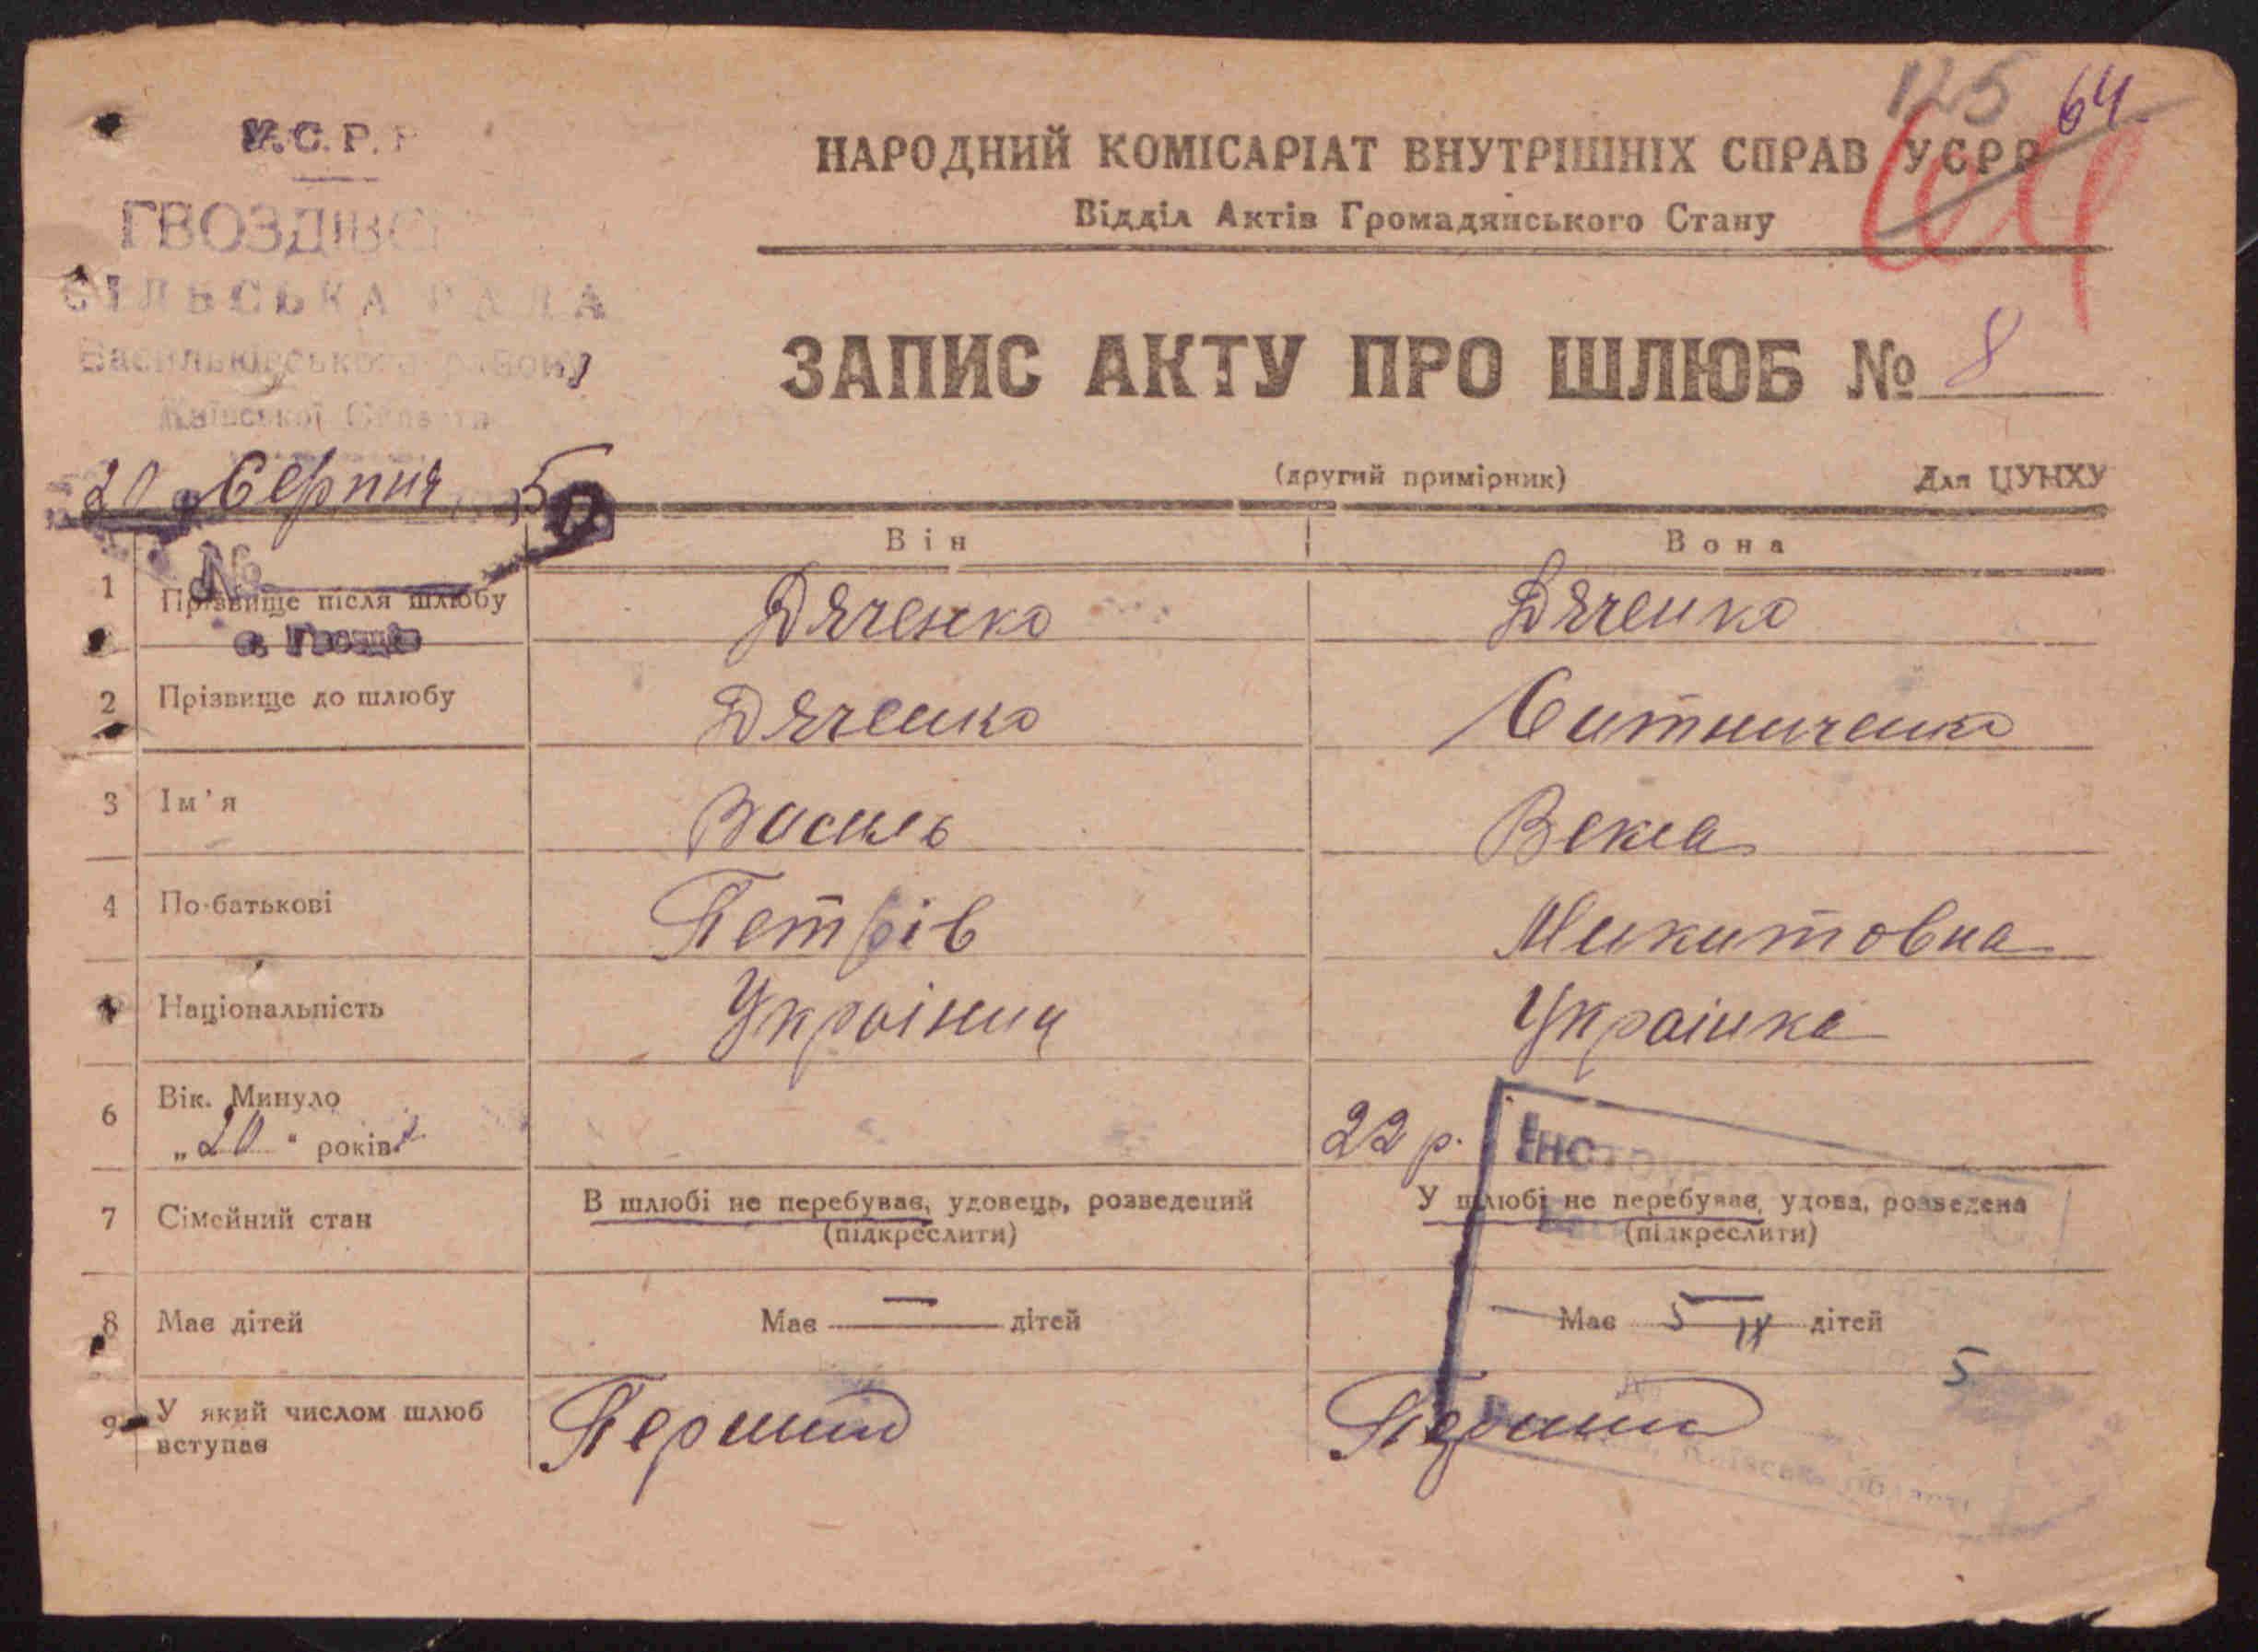 125 64.
У.С.Р.Р
ГВОЗДІВС
СІЛЬСЬКА РАДА
Васильківського району
Київської Области
20 Серпня 5
№
с. Гвоздів
НАРОДНИЙ КОМІСАРІАТ ВНУТРІШНІХ СПРАВ УСРР
Відділ Актів Громадянського Стану
ЗАПИС АКТУ ПРО ШЛЮБ № 8
(другий примірник) Для ЦУНХУ
Він Вона
1 Прізвище після шлюбу Дяченко Дяченко
2 Прізвище до шлюбу Дяченко Ситниченко
3 Ім'я Василь Векла
4 По-батькові Петрів Микитовна
Національність Украінец Украінка
6 Вік. Минуло
„20" років 22 р.
7 Сімейний стан В шлюбі не перебував, удовець, розведений У шлюбі не перебував, удова, розведена
(підкреслити) (підкреслити)
8 Має дітей Має — дітей Має 5 IX дітей
5
9 У який числом шлюб
вступає Перший Перший
Київської області